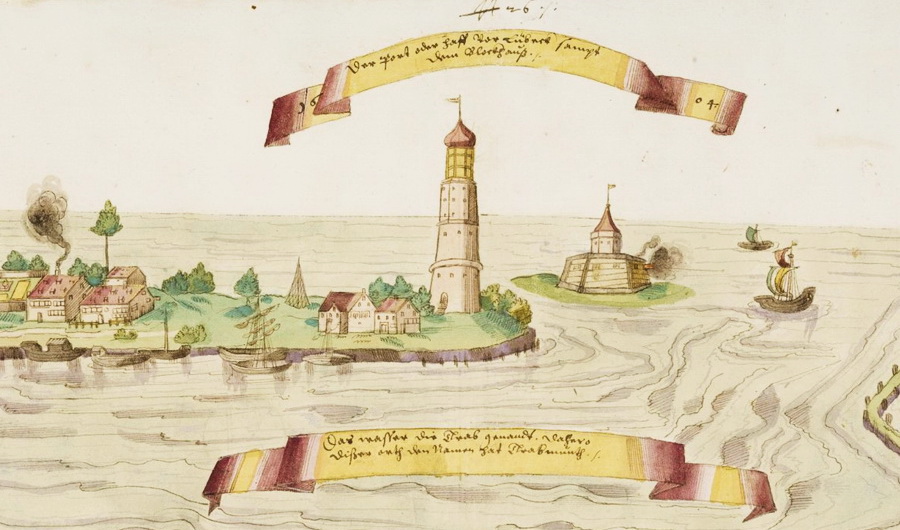 Der Port oder Haff Vor Lübeck sampt
dem Blockhauß.
16 04
Das wasser die Trab genandt, dahero
dißer orth den Namen hat Trabmündt.